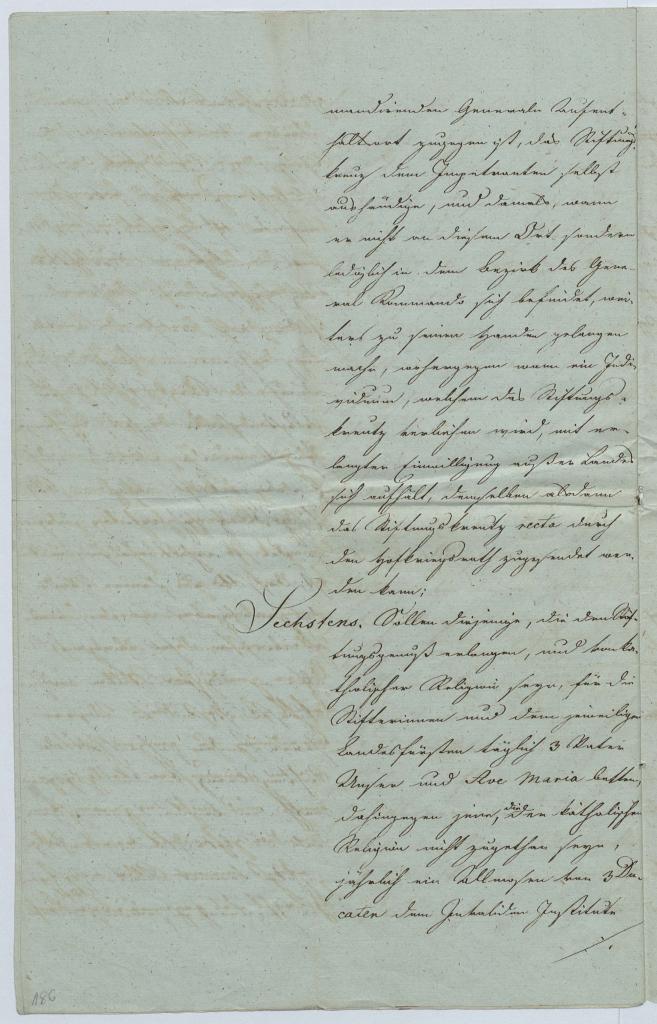 mandirenden Generaln Aufent-
haltsort zugegen ist, das Stiftungs
kreuz dem Impetranten selbst
aushändige, und damals, wann
er nicht an diesem Ort, sondern
lediglich in dem Bezirk des Gene-
ral Kommando sich befindet, wei-
ters zu seinen Handen gelangen
mache, wohergegen wann ein Indi-
viduum, welchem das Stiftungs-
kreutz verliehen wird, mit er-
langter Einwilligung außer Landes
sich aufhält, demselben alsdann
das Stiftungskreutz recta durch
den Hofkriegsrath zugesendet wer-
den kann;
Sechstens. Sollen diejenige, die den Stif-
tungsgenuß erlangen, und von ka-
tholischer Religion seyn, für die
Stifterinnen und dem jeweiligen
Landesfürsten täglich 3 Vater
Unser und Ave Maria betten,
dahingegen jene, die der katholischen
Religion nicht zugethan seyn,
jährlich ein Allmosen von 3 Du-
caten dem Invaliden Institute
186